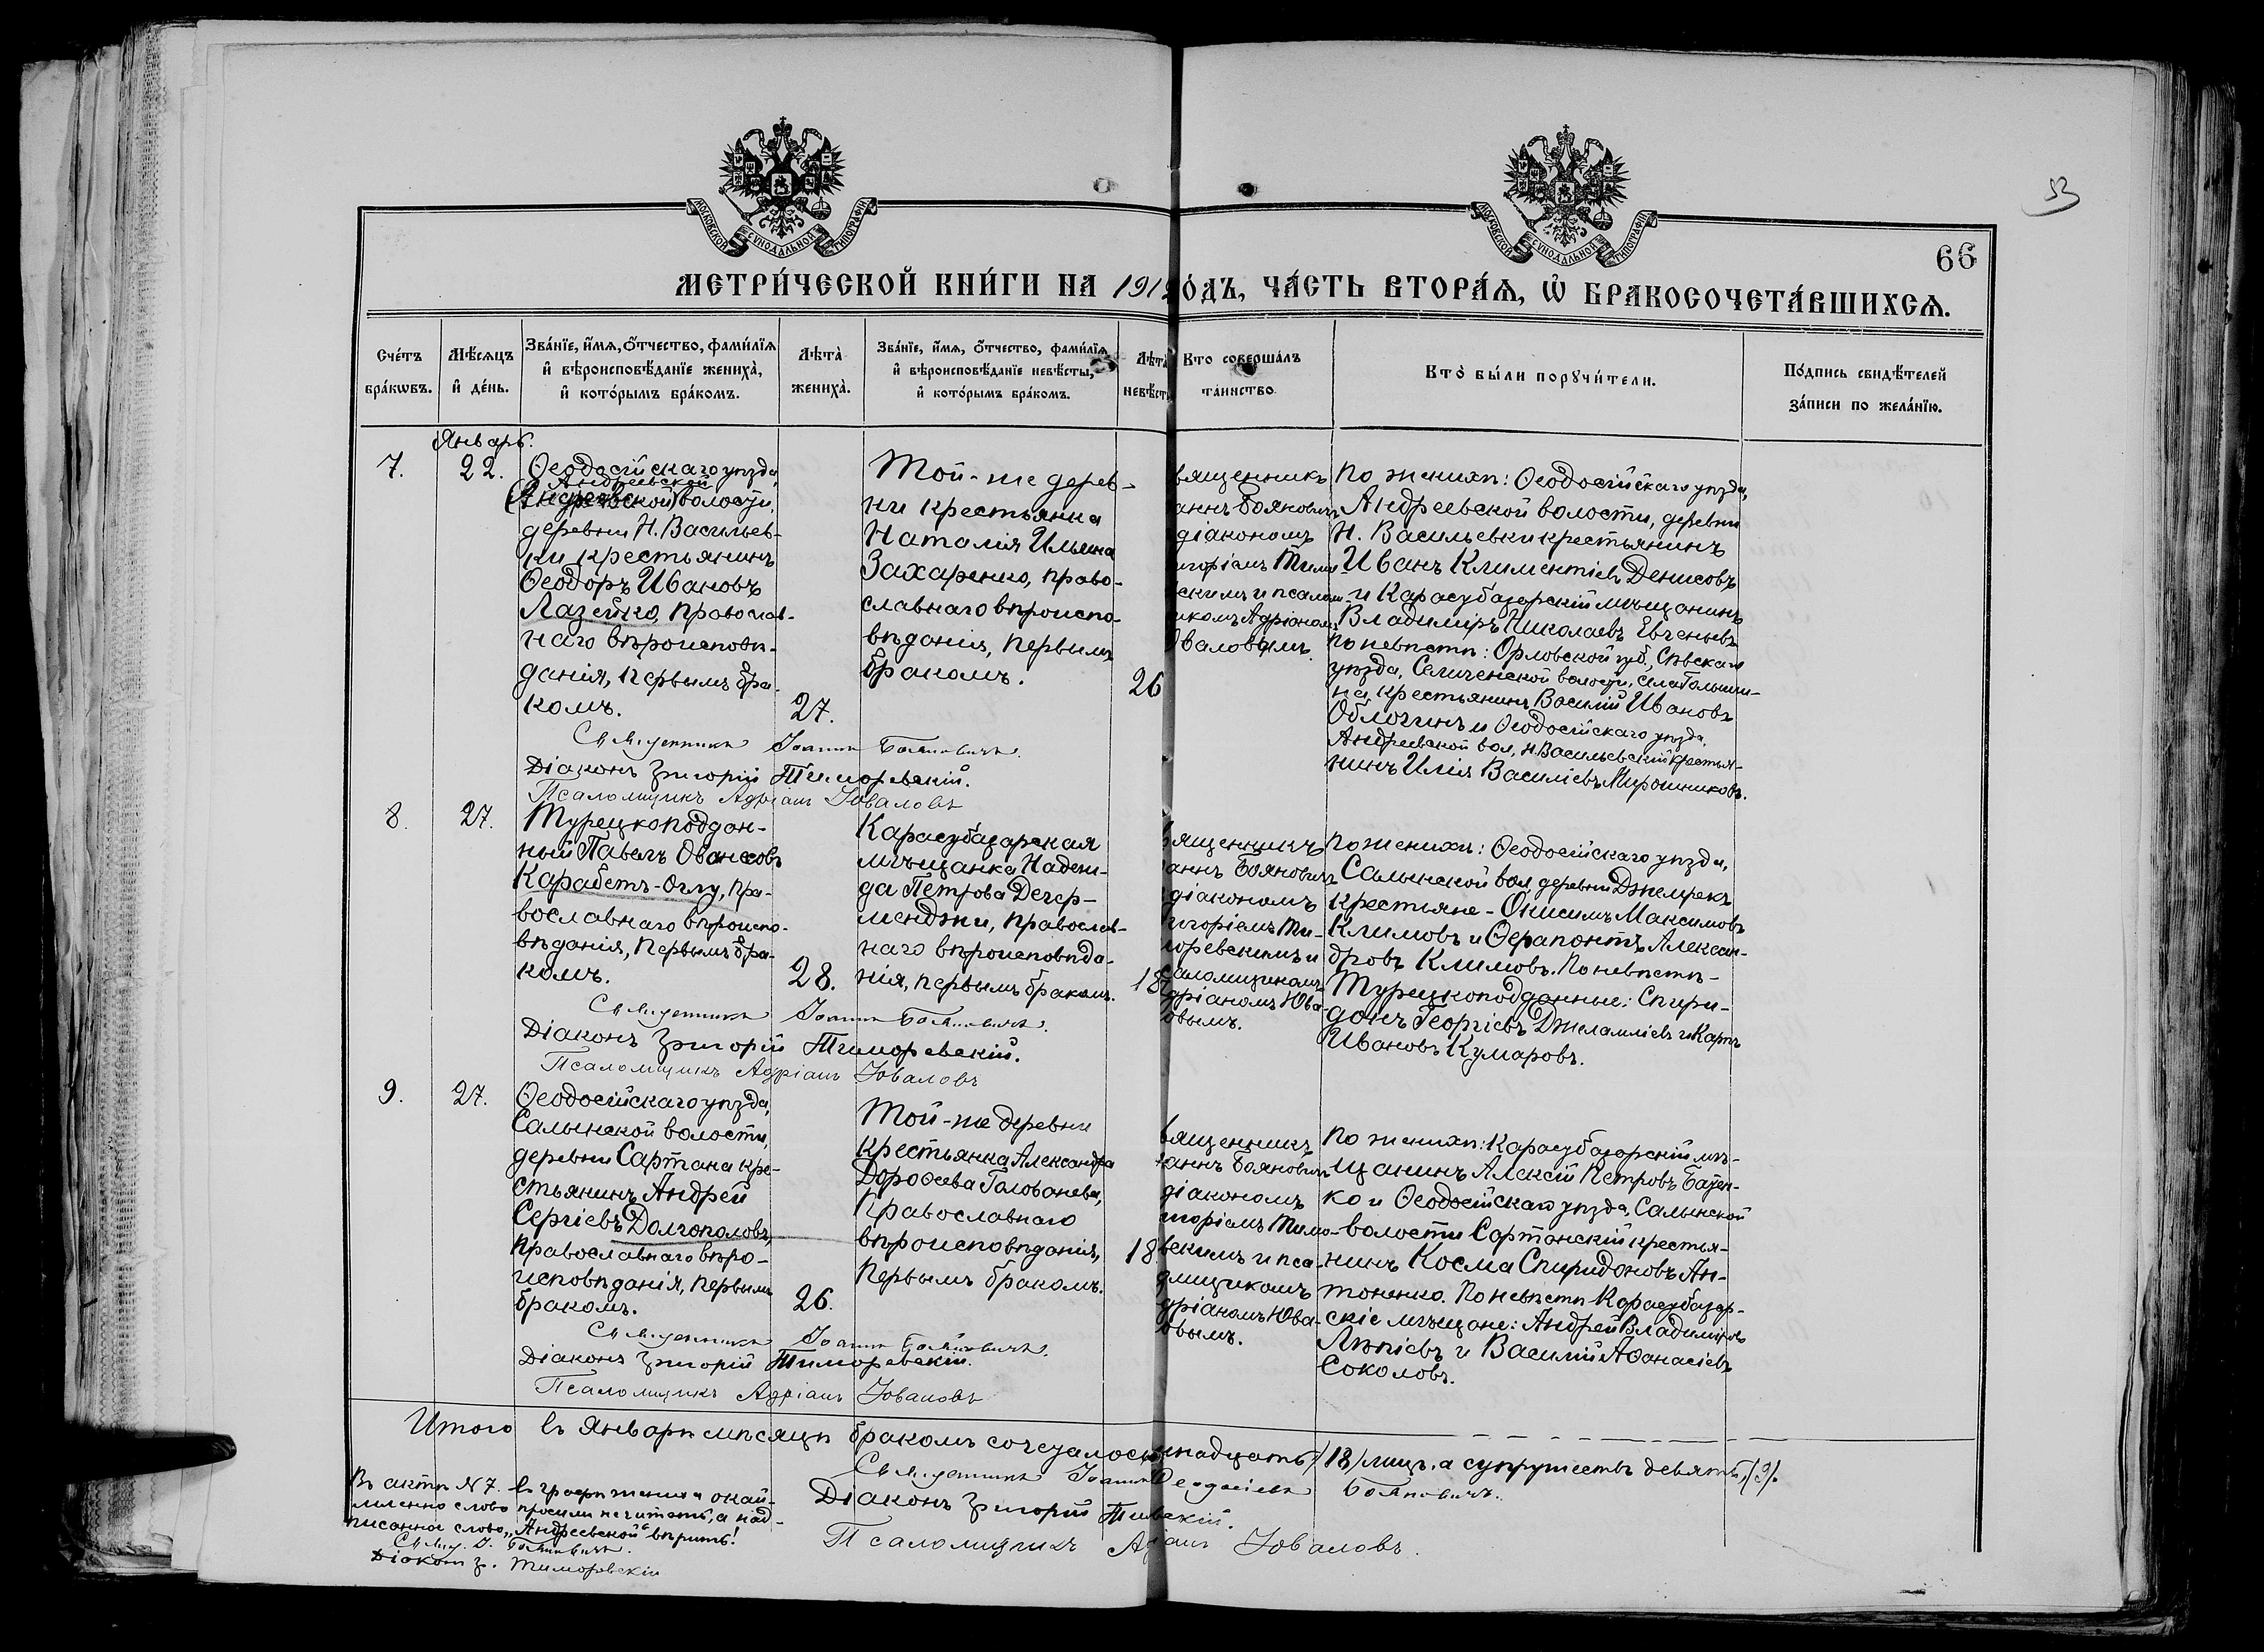 53
66
МОСКОВСКОЙ СѴНОДАЛЬНОЙ ТИПОГРАФІИ
МОСКОВСКОЙ СѴНОДАЛЬНОЙ ТИПОГРАФІИ
МЕТРИ́ЧЕСКОЙ КНИ́ГИ НА 191 О́ДЪ, ЧА́СТЬ ВТОРА́Ѧ, Ѡ҆ БРАКОСОЧЕТА́ВШИХСѦ.
Сче́тъ
бра́кѡвъ.
Мѣ́сѧцъ
и҆ де́нь.
Зва́нїе, и҆́мѧ, ѻ҆́тчество, фами́лїѧ
и҆ вѣроисповѣ́данїе жениха̀,
и҆ кото́рымъ бра́комъ.
Лѣта̀
жениха̀.
Зва́нїе, и҆́мѧ, ѻ҆́тчество, фами́лїѧ
и҆ вѣроисповѣ́данїе невѣ́сты,
и҆ кото́рымъ бра́комъ.
Лѣта̀
невѣ́ст
Кто соверша́лъ
та́инство.
Кто̀ бы́ли порꙋчи́тели.
По́дпись свидѣ́телей
за́писи по жела́нїю.
Январь.
7.
22.
Ѳеодосійскаго уѣзда,
Андреевской
волости,
деревни Н. Васильев-
ки крестьянинъ
Ѳеодоръ Ивановъ
Лазейко, православ-
наго вѣроисповѣ-
данія, первымъ бра-
комъ.
27.
Той-же дерев-
ни крестьянка
Наталія Ильина
Захаренко, право-
славнаго вѣроиспо-
вѣданія, первымъ
бракомъ.
26
вященникъ
аннъ Бояновичъ
діакономъ
игоріемъ Тимо
скимъ и псалом-
икомъ Адріаномъ
оваловымъ.
По женихѣ: Ѳеодосійскаго уѣзда,
Андреевской волости, деревни
Н. Васильевки крестьянинъ
Иванъ Климентіевъ Денисовъ
и Карасубазарскій мѣщанинъ
Владиміръ Николаевъ Евгеньевъ
по невѣстѣ: Орловской губ., Сѣвскаго
уѣзда, волости, села
на, крестьянинъ Василій Ивановъ
Облогинъ и Ѳеодосійскаго уѣзда,
Андреевской вол., Н. Васильевскій крестья-
нинъ Илія Василіевъ Мирошниковъ.
Священникъ Іоаннъ Бояновичъ.
Діаконъ Григорій Тиморевскій.
Псаломщикъ Адріанъ Юваловъ
8.
27.
Турецкоподдан-
ный Павелъ Ованесовъ
Карабетъ-Оглу, пра-
вославнаго вѣроиспо-
вѣданія, первымъ бра-
комъ.
28.
Карасубазарская
мѣщанка Надеж-
да Петрова Дегер-
менджи, православ-
наго вѣроисповѣда-
нія, первымъ бракомъ.
18
вященникъ
аннъ Бояновичъ
діакономъ
игоріемъ Ти-
моревскимъ и
аломщикомъ
дріаномъ Юва-
овымъ.
По женихѣ: Ѳеодосійскаго уѣзда,
Салынской вол. деревни Джемрекъ
крестьяне - Онисимъ Максимовъ
Климовъ и Ѳерапонтъ Алексан-
дровъ Климовъ. По невѣстѣ -
Турецкоподданные: Спири-
донъ Георгіевъ Джеламліевъ и Карпъ
Ивановъ Кумаровъ.
Священникъ Іоаннъ Бояновичъ.
Діаконъ Григорій Тиморевскій.
Псаломщикъ Адріанъ Юваловъ
9.
27.
Ѳеодосійскаго уѣзда,
Салынской волости,
деревни Сартана кре-
стьянинъ Андрей
Сергіевъ Долгополовъ,
православнаго вѣро-
исповѣданія, первымъ
бракомъ.
26.
Той-же деревни
крестьянка Александра
Дороѳеева Голованева,
православнаго
вѣроисповѣданія,
первымъ бракомъ.
18
вященникъ
аннъ Бояновичъ
діакономъ
игоріемъ Тимо-
вскимъ и пса-
мщикомъ
дріаномъ Юва-
овымъ.
По женихѣ: Карасубазарскій мѣ-
щанинъ Алексій Петровъ Бузен-
ко и Ѳеодосійскаго уѣзда, Салынской
волости Сартанскій крестья-
нинъ Косма Спиридоновъ Ан-
тоненко. По невѣстѣ Карасубазар-
скіе мѣщане: Андрей Владиміровъ
и Василій Аѳанасіевъ
Соколовъ.
Священникъ Іоаннъ Бояновичъ.
Діаконъ Григорій Тиморевскій.
Псаломщикъ Адріанъ Юваловъ
Итого въ Январѣ мѣсяцѣ бракомъ сочеталось мнадцать /18/ лицъ, а супружествъ девять /9/.
Священникъ Іоаннъ Ѳеодосіевъ Бояновичъ.
Діаконъ Григорій Тивскій.
Псаломщикъ Аіанъ Юваловъ.
Въ актѣ N 7. въ графѣ жениха окай-
мленно слово просимъ не читать, а над-
писанное слово „Андреевской" вѣрить!
Свящ. І. Бояновичъ.
Діаконъ Г. Тиморевскій